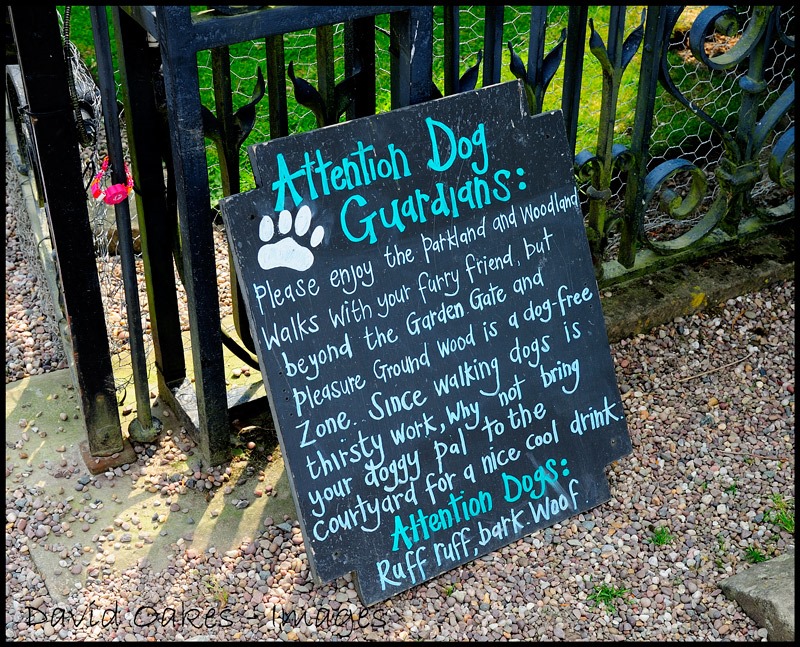 Attention Dog
Guardians:
Please enjoy the Parkland and Woodland
Walks with your furry friend, but
beyond the Garden Gate and
Pleasure Ground Wood is a dog-free
Zone.. Since walking dogs is
thirsty work, why not bring
your doggy pal to the
courtyard for a nice cool drink.
Attention Dogs:
Ruff ruff, bark. Woof.
David Oakes - Images